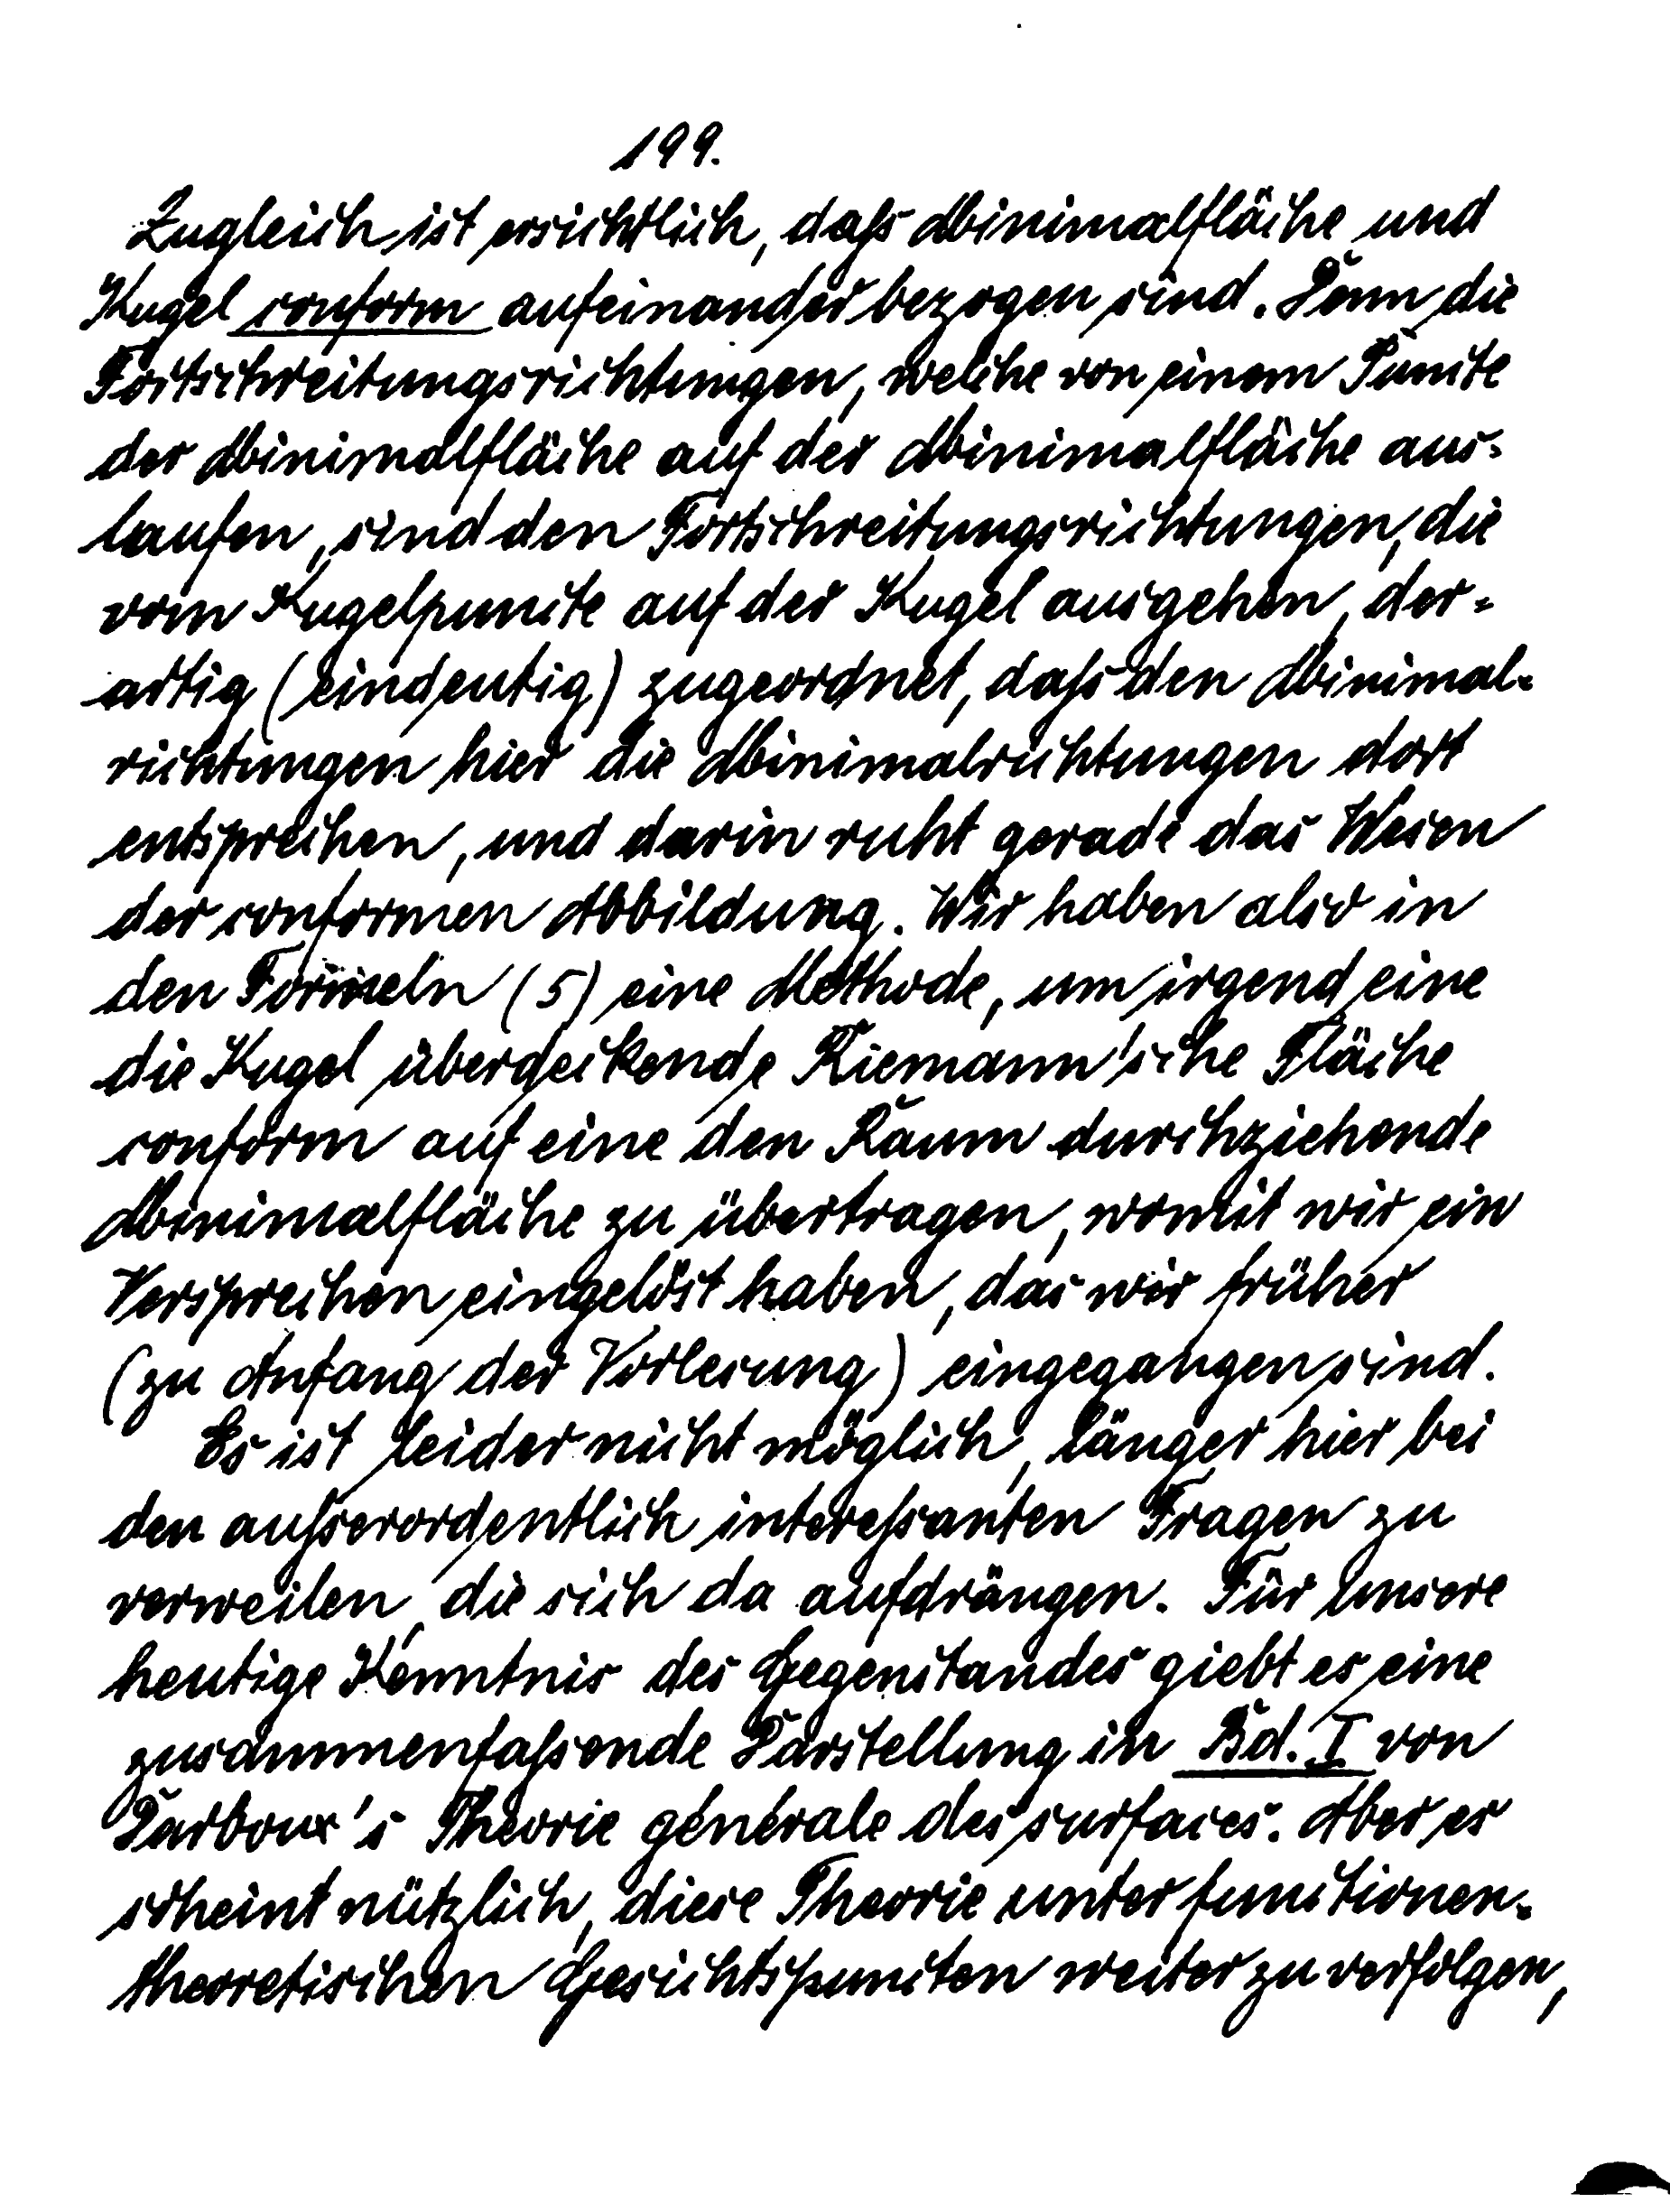 199.
Zugleich ist ersichtlich, daſs Minimalfläche und
Kugel conform aufeinander bezogen sind. Denn die
Fortschreitungsrichtungen, welche von einem Puncte
der Minimalfläche auf der Minimalfläche aus-
laufen, sind den Fortschreitungsrichtungen, die
vom Kugelpuncte auf der Kugel ausgehen, der-
artig (eindeutig) zugeordnet, daſs den Minimal-
richtungen hier die Minimalrichtungen dort
entsprechen, und darin ruht gerade das Wesen
der conformen Abbildung. Wir haben also in
den Formeln (5) eine Methode, um irgend eine
die Kugel überdeckende Riemann'sche Fläche
conform auf eine den Raum durchziehende
Minimalfläche zu übertragen, womit wir ein
Versprechen eingelöst haben, das wir früher
(zu Anfang der Vorlesung) eingegangen sind.
Es ist leider nicht möglich, länger hier bei
den auſserordentlich intereſsanten Fragen zu
verweilen, die sich da aufdrängen. Für unsere
heutige Kenntnis des Gegenstandes giebt es eine
zusammenfaſsende Darstellung in Bd. I von
Darboux's Théorie générale des surfaces. Aber es
scheint nützlich, diese Theorie unter functionen-
theoretischen Gesichtspuncten weiter zu verfolgen,